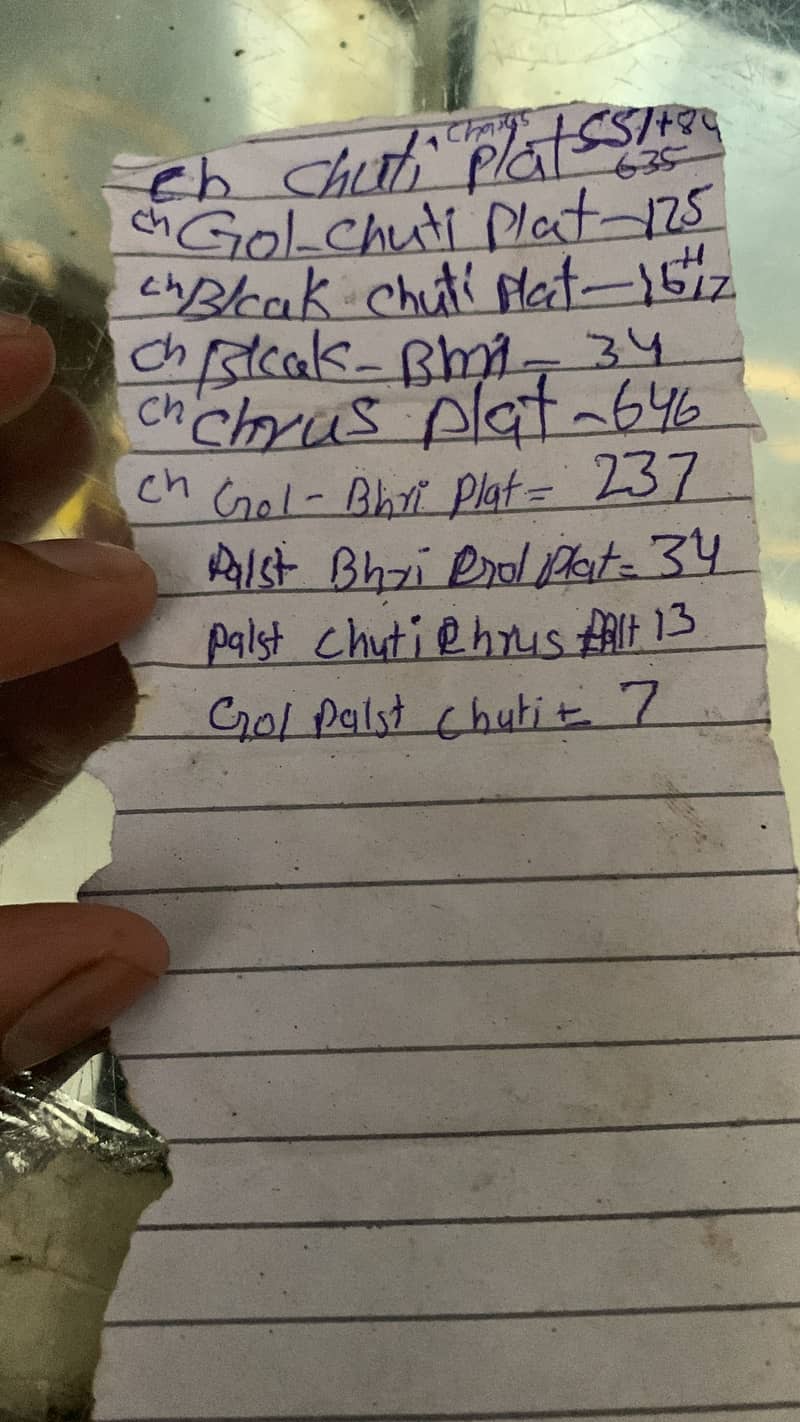 ch chuti chorys plat 551+84
635
ch Gol-chuti Plat-125
ch Blcak chuti Plat-16+1 17
ch Blcak-Bhri-34
ch Chrus Plat-646
ch Gol-Bhri Plat=237
Palst Bhri Gol Plat=34
Palst chuti Chrus 13
Gol Palst chuti=7